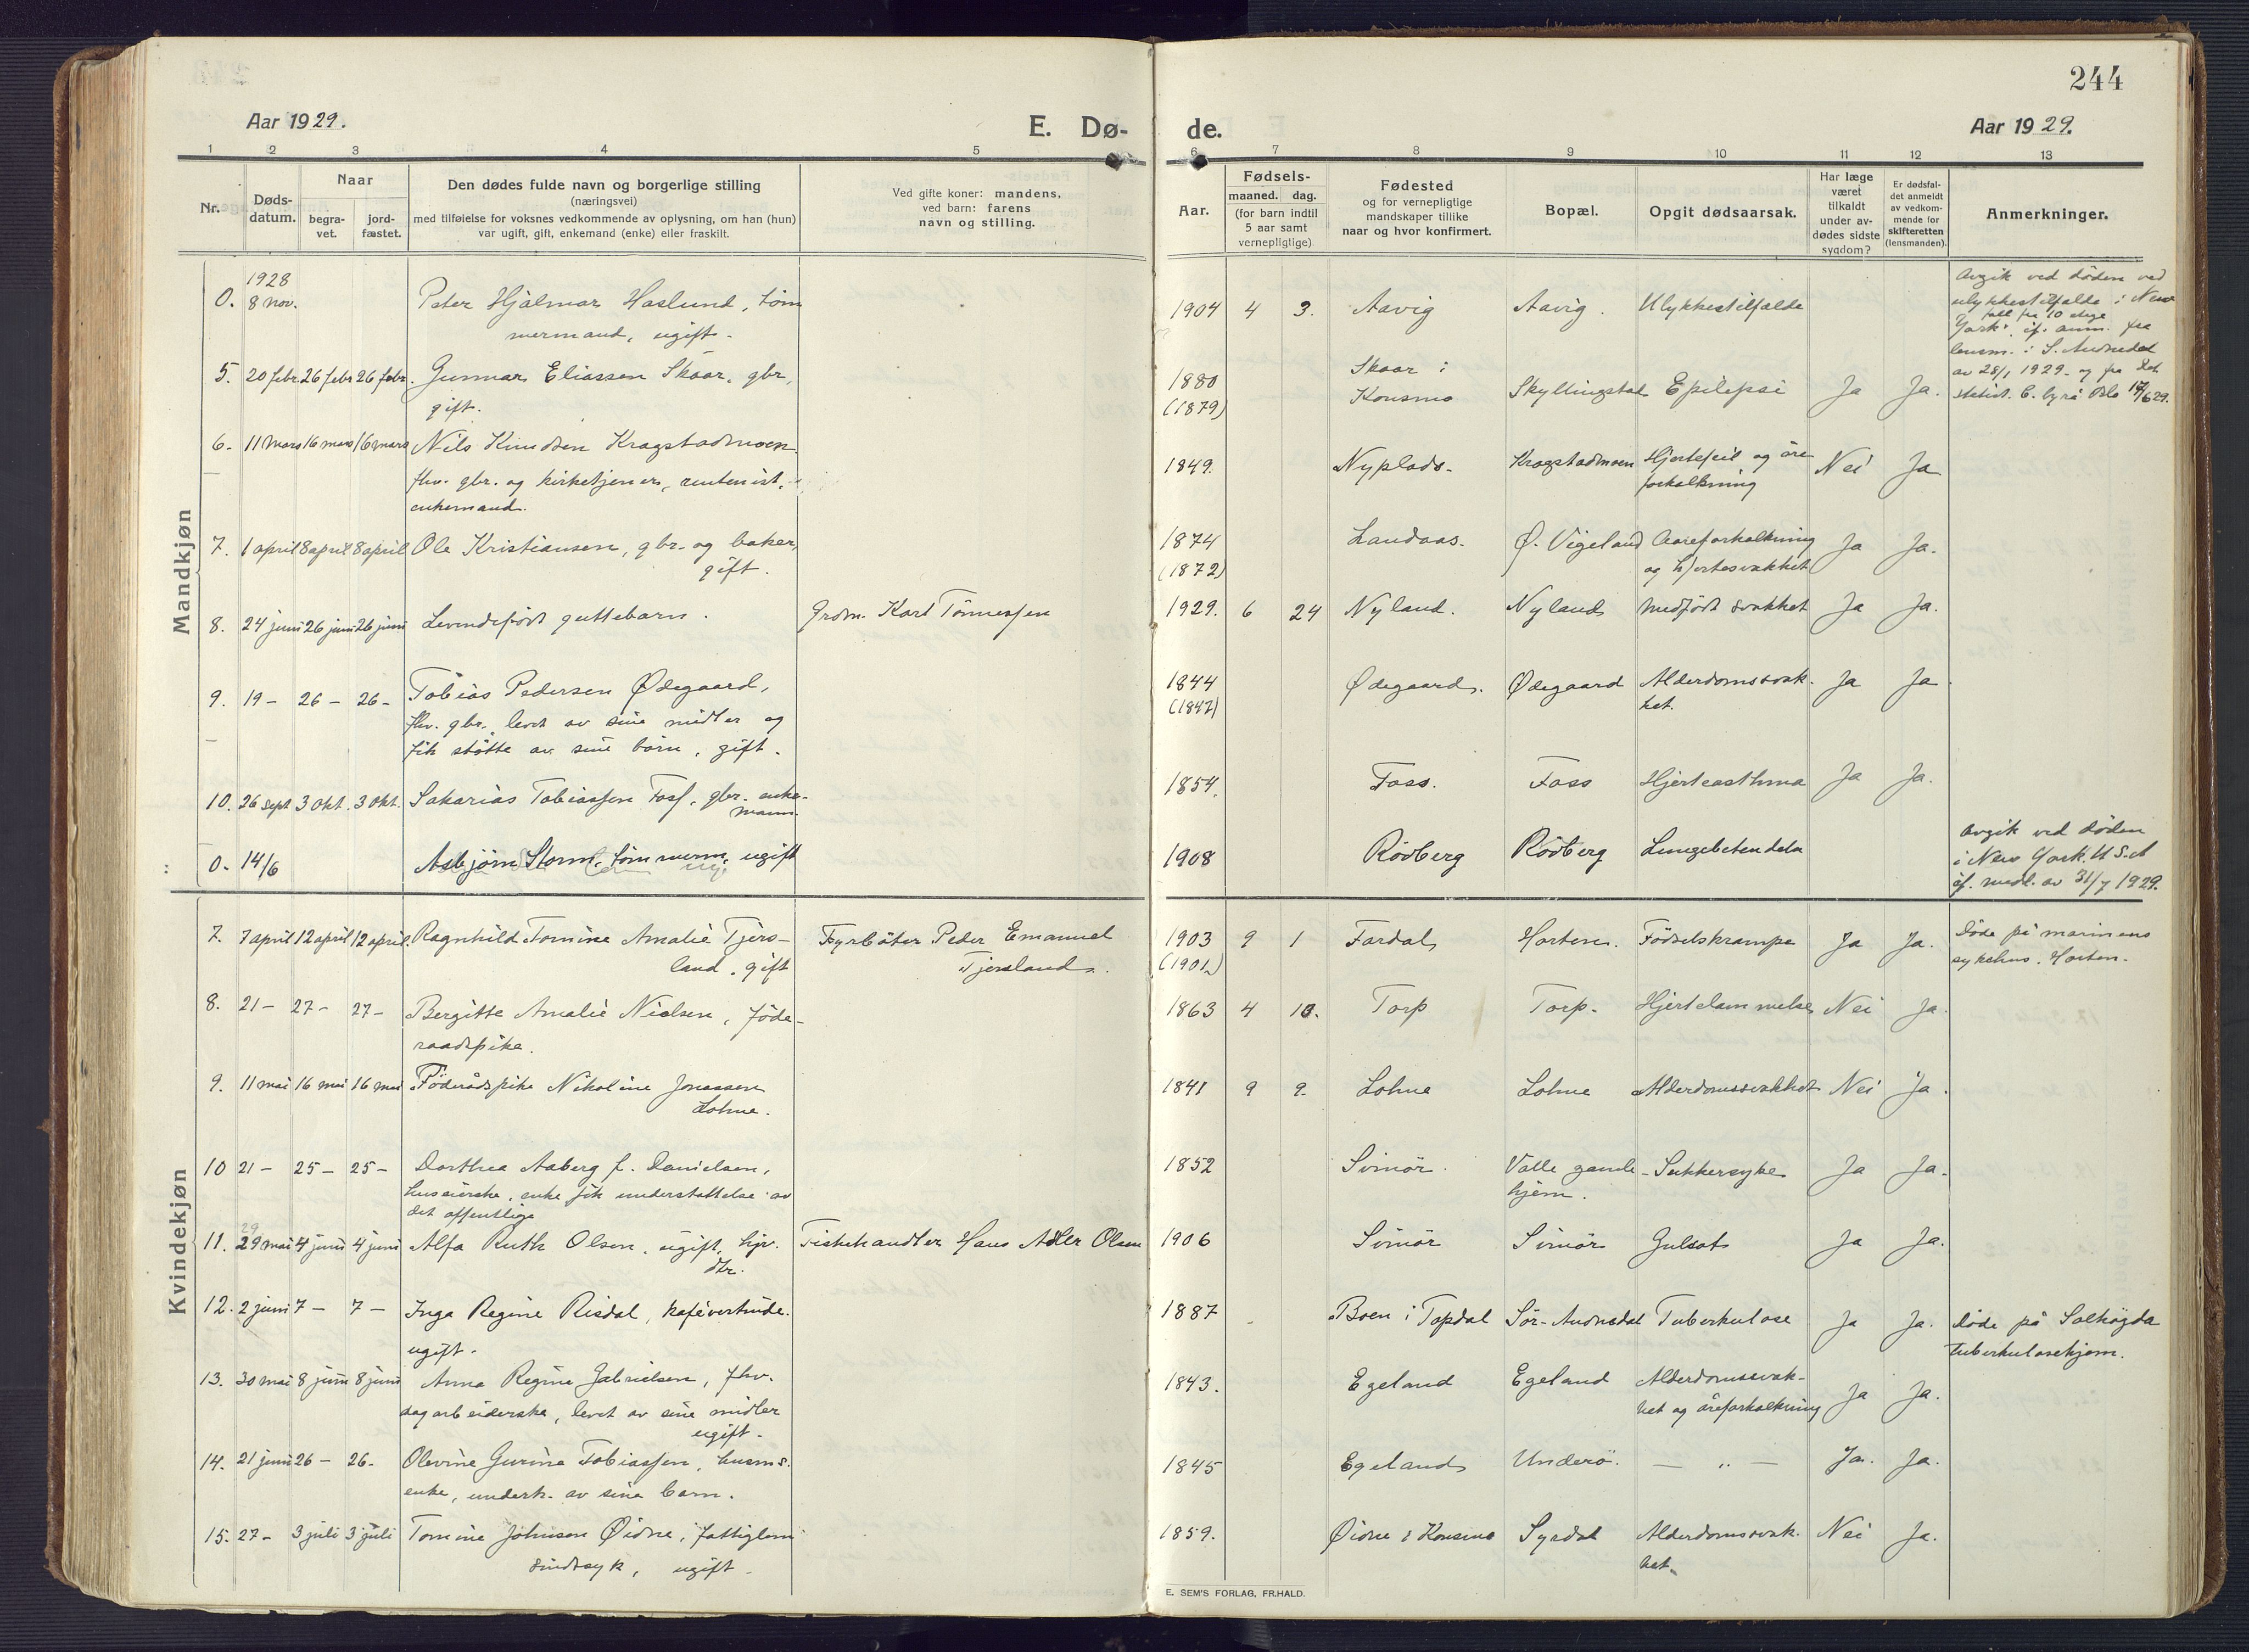 244
Aar 1929.
E. Dø-
de.
Aar 1929.
1 2 3 4 5 6 7 8 9 10 11 12 13
Nr.
Døds-
datum.
Naar
begra-
vet.
jord-
fæstet.
Den dødes fulde navn og borgerlige stilling
(næringsvei)
med tilføielse for voksnes vedkommende av oplysning, om han (hun)
var ugift, gift, enkemand (enke) eller fraskilt.
Ved gifte koner: mandens,
ved barn: farens
navn og stilling.
Aar.
Fødsels-
maaned. dag.
(for barn indtil
5 aar samt
vernepligtige)
Fødested
og for vernepligtige
mandskaper tillike
naar og hvor konfirmert.
Bopæl.
Opgit dødsaarsak.
Har læge
været
tilkaldt
under av-
dødes sidste
sygdom?
Er dødsfal-
det anmeldt
av vedkom-
mende for
skifteretten
(lensmanden).
Anmerkninger.
Mandkjøn
1928
0. 8 nov. Peter Hjalmar Haslund, tøm
mermand, ugift.
1904 4 3. Aavig Aavig. Ulykkestilfælde
Avgik ved døden ved
ulykkestilfælde i New
fall fra 10 etage
York. if. anm. fra
lensm. i S. Audnedal
av 28/1 1929 og fra Det
statist. C. byrå Oslo 17/6 29.
5. 20 febr. 26 febr 26 febr. Gunnar Eliassen Skaar, gbr,
gift.
1880
(1879)
Skaar i
Konsmo
Skyllingstal Epilepsi Ja Ja.
6. 11 mars 16 mars 16 mars Nils Knudsen Kragstadmoen
fhv. gbr. og kirketjener, rentenist,
enkemand.
1849. Nyplads. Kragstadmoen Hjertefeil og åre
forkalkning
Nei Ja
7. 1 april 8 april 8 april Ole Kristiansen, gbr. og baker,
gift.
1874
(1872)
Landaas. Ø. Vigeland Aareforkalkning
og hjertesvakhet
Ja Ja.
8. 24 juni 26 juni 26 juni Levendefødt guttebarn. Grdm. Karl Tønnessen
1929. 6 24 Nyland. Nyland Medfødt svakhet Ja Ja.
9. 19 - 26 - 26 - Tobias Pedersen Ødegaard,
fhv. gbr. levet av sine midler og
fik støtte av sine børn, gift.
1844
(1847)
Ødegaard. Ødegaard Alderdomssvak-
het.
Ja Ja
10. 26 sept 3 okt. 3 okt. Sakarias Tobiassen Foss, gbr. enke-
mann.
1854. Foss. Foss Hjerteasthma Ja Ja.
0. 14/6 Asbjørn Storm, tømmerm, ugift
1908 Rødberg Rødberg Lungebetendelse
Avgik ved døden
i New York. U.S.A
if. medl. av 31/7 1929.
Kvindekjøn
7. 7 april 12 april 12 april. Ragnhild Tomine Amalie Tjers-
land, gift
Fyrbøter Peder Emanuel
Tjersland.
1903
(1901)
9 1 Fardal Horten. Fødselskrampe Ja Ja.
Døde på marinens
sykehus. Horten.
8. 21 - 27 - 27 - Bergitte Amalie Nielsen, føde-
raadspike.
1863 4 10. Torp Torp. Hjertelammelse Nei Ja.
9. 11 mai 16 mai 16 mai Føderådspike Nikoline Jonassen
Lohne.
1841 9 9. Lohne Lohne Alderdomssvakhet Nei Ja.
10 21 - 25 - 25 - Dorthea Aaberg f. Danielsen,
huseierske, enke fik understøttelse av
det offentlige
1852 Svinør. Valle gamle-
hjem.
Sukkersyke Ja Ja.
29
11. 29 mai 4 juni 4 juni Alfa Ruth Olsen, ugift, hjv.
dtr.
Fiskehandler Hans Adler Olsen
1906 Svinør Svinør Gulsot Ja Ja.
12. 2 juni 7 - 7 - Inga Regine Risdal, kafévertinde.
ugift.
1887 Boen i Topdal Sør-Audnedal Tuberkulose Ja Ja.
Døde på Solhøgda
tuberkulosehjem.
13. 30 mai 8 juni 8 juni Anna Regine Gabrielsen, fhv.
dagarbeiderske, levet av sine midler
ugift.
1843. Egeland Egeland Alderdomssvak-
het og åreforkalkning
Ja Ja.
14. 21 juni 26 - 26 - Olevine Gurine Tobiassen, husms.
enke, underh. av sine barn.
1845 Egeland Underø. — „ — Ja. Ja.
15. 27 - 3 juli 3 juli Tomine Johnsen Øidne, fattiglem
sindssyk, ugift.
1859. Øidne i Konsmo Syrdal Alderdomssvak-
het.
Nei Ja.
E. SEM'S FORLAG, FR.HALD.